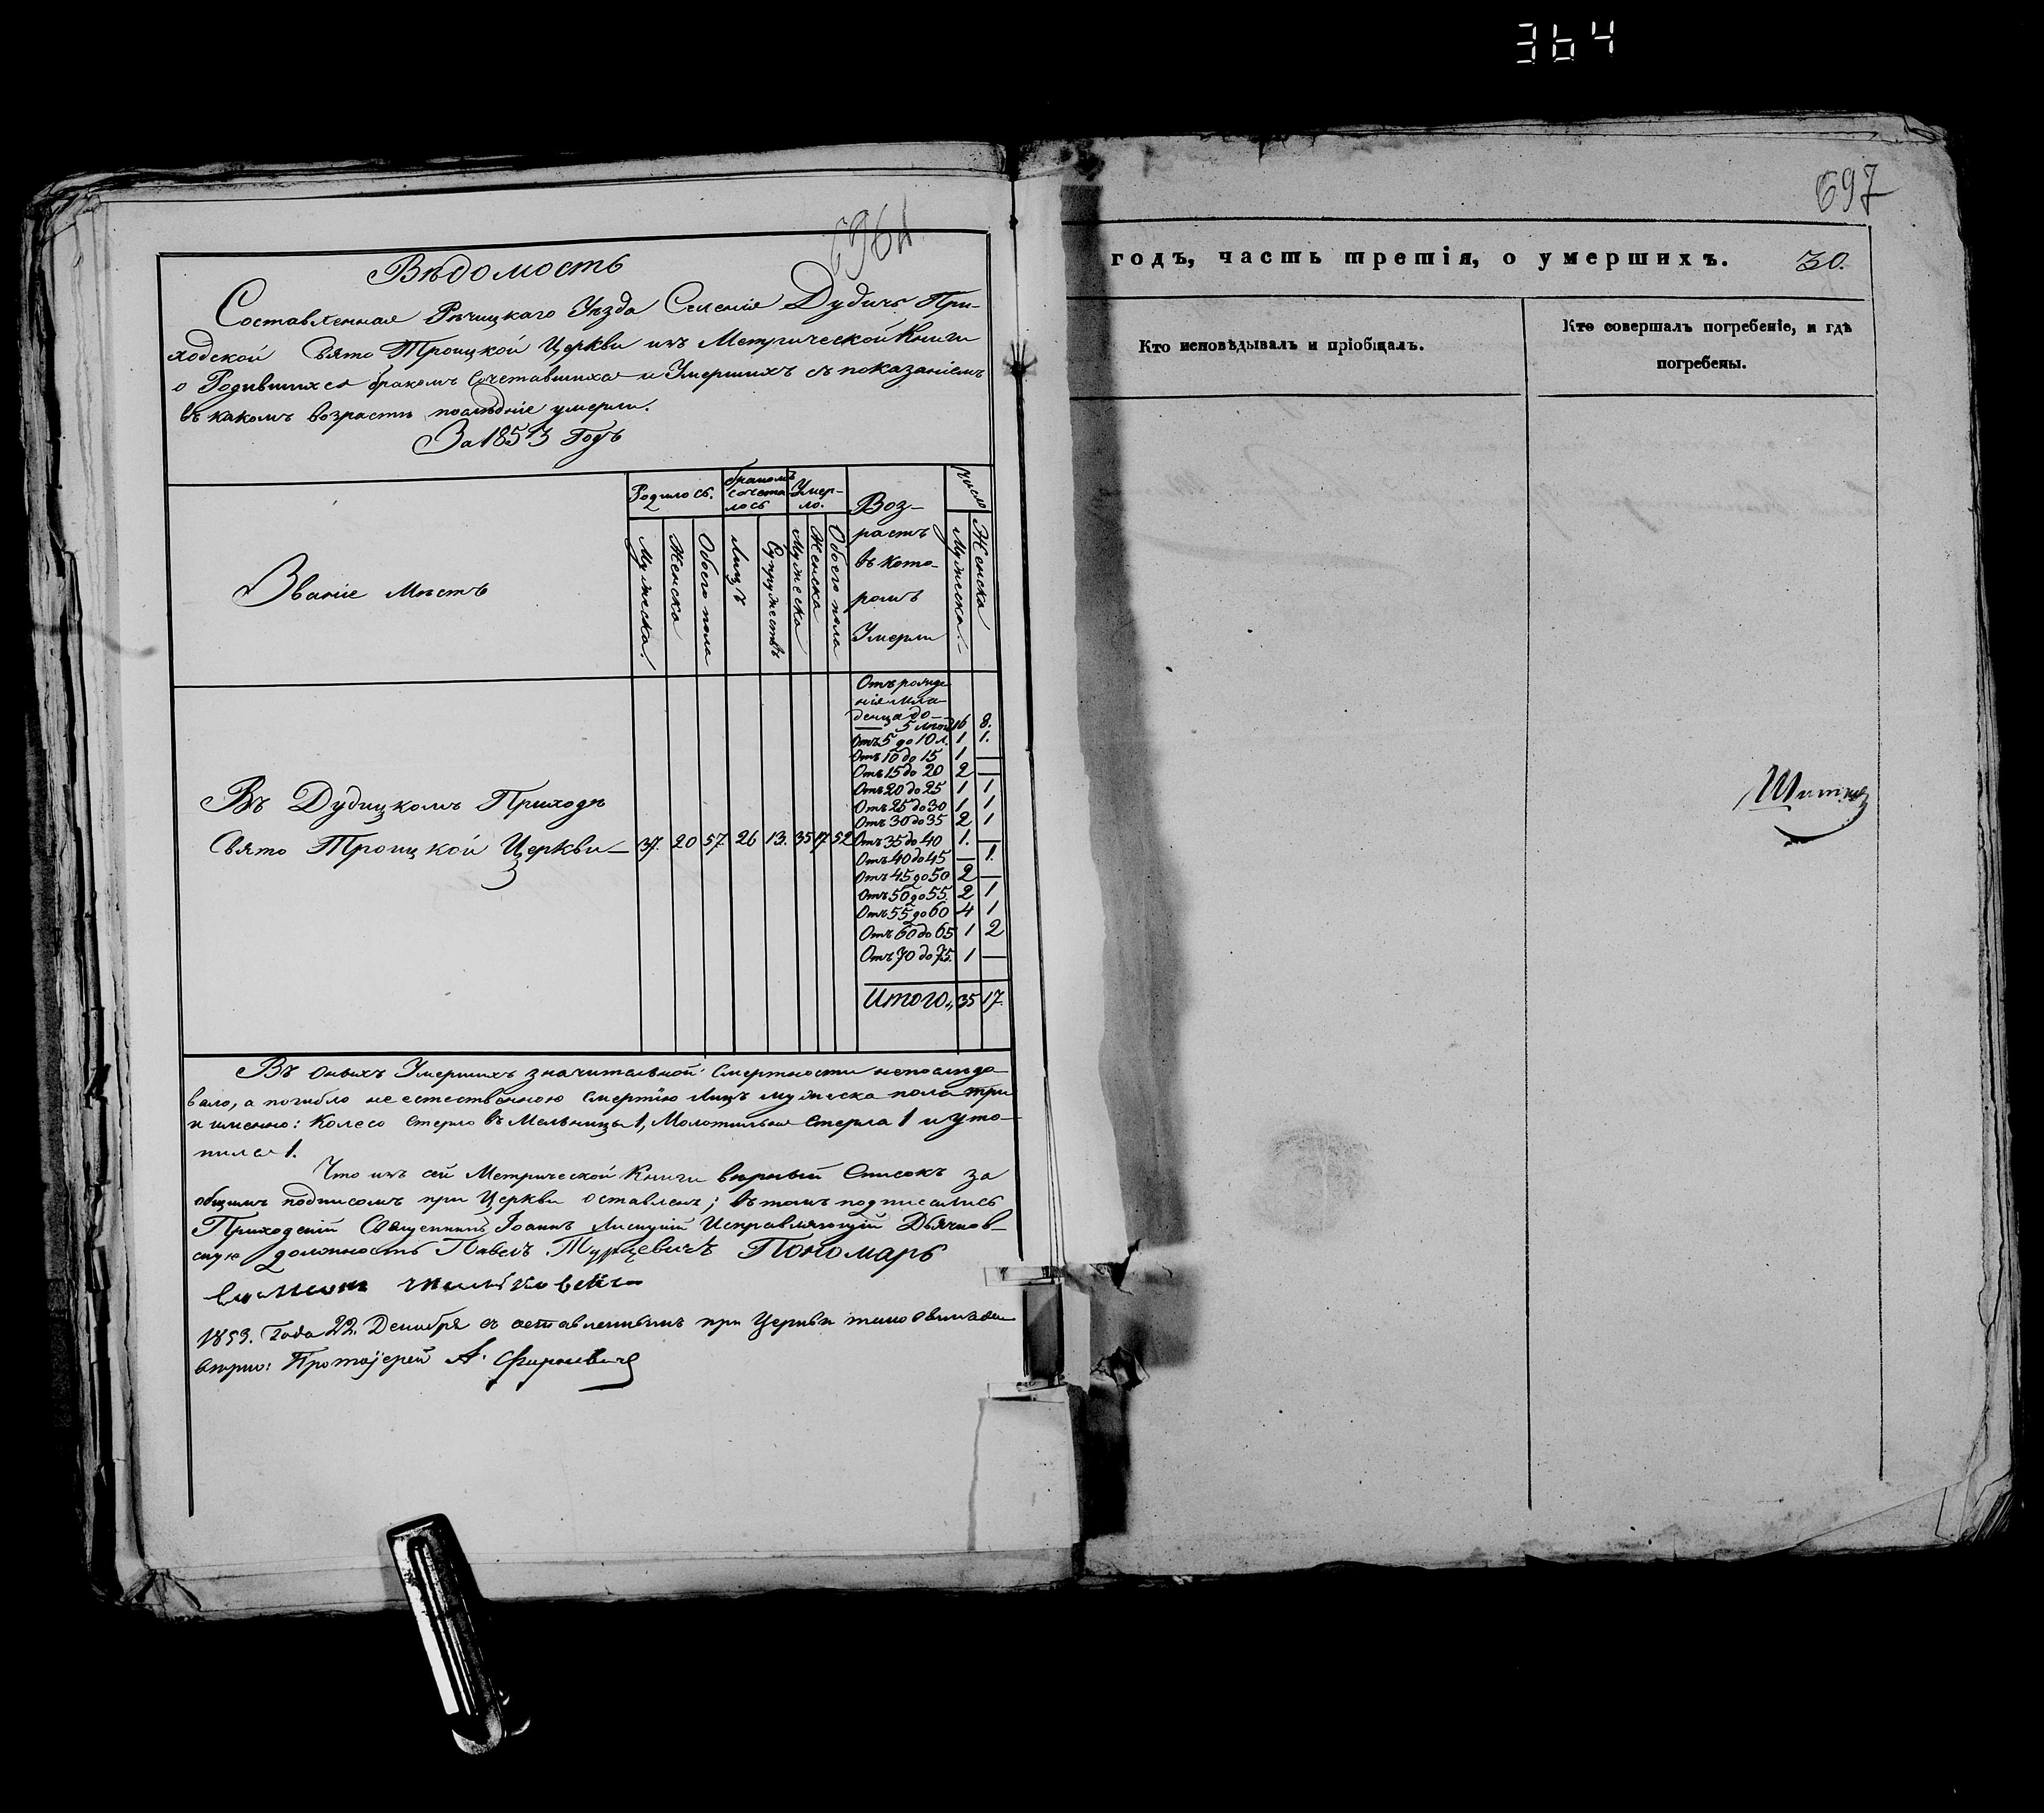 364
696
Вѣдомость
Составленная Рѣчицкаго Уѣзда Селенія Дудичъ При-
ходской Свято Троицкой Церкви изъ Метрической Книги
о Родившихся бракомъ сочетавшихся и Умершихъ съ показаніемъ
въ какомъ возрастѣ послѣдніе умерли.
За 1853 Годъ
Званіе Мѣстъ
Родилось.
Мужеска.
Женска
Обоего пола
бракомъ
сочета
лось
Лицъ
Супружествъ
Умер-
ло.
Мужеска
Женска
Обоего пола
Воз-
растъ
въ кото-
ромъ
Умерли
Число
Мужеска.
Женска
Въ Дудицкомъ Приходѣ
Свято Троицкой Церкви — 37. 20 57 26 13. 35 17 52
Отъ рожде
нія мла-
денца до
5 лѣтъ 16 8.
Отъ 5 до 10 л. 1 1.
Отъ 10 до 15 1 —
Отъ 15 до 20 2 —
Отъ 20 до 25 1 1
Отъ 25 до 30 1 1
Отъ 30 до 35 2 1
Отъ 35 до 40 1. —
Отъ 40 до 45 — 1.
Отъ 45 до 50 2 —
Отъ 50 до 55. 2 1
Отъ 55 до 60 4 1
Отъ 60 до 65 1 2
Отъ 70 до 75. 1 —
Итого, 35 17.
Въ оныхъ Умершихъ значительной Смертности непослѣдо
вало, а погибло не естественною смертію Лицъ мужеска пола три
и именно: Колесо стерло въ Мельницы 1, Молотильня стерла 1 и уто-
пился 1.
Что изъ сей Метрической Книги вѣрный Списокъ за
общимъ подписомъ при Церкви оставленъ; въ томъ подписались
Приходскій Священникъ Іоаннъ Лисицкій Исправляющій Дьячков-
скую должность Павелъ Турцевичъ Пономарь
1853. Года 22. Декабря съ оставленнымъ при Церкви
вѣрно: Протоіерей А.
697
годъ, часть третія, о умершихъ. 30.
Кто исповѣдывалъ и пріобщалъ.
Кто совершалъ погребеніе, и гдѣ
погребены.